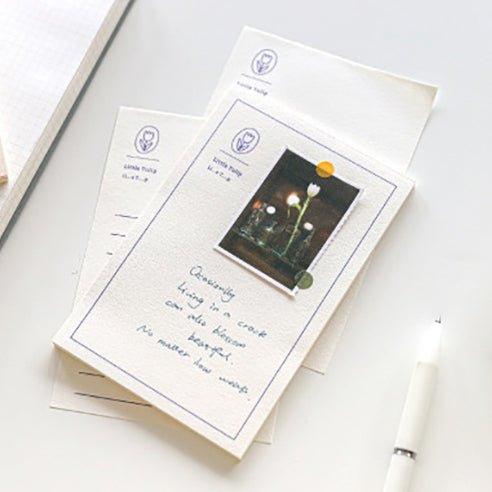 Little Tulip
Little Tulip
Little Tulip
Ocasionlly
living in a crack
can also blossom
beautiful.
No matter how